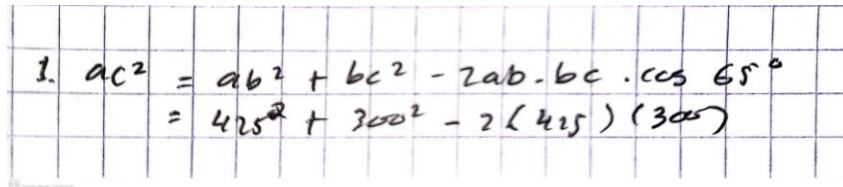 1. ac² = ab² + bc² - 2ab.bc . cos 65°
= 425² + 300² - 2 (425) (300)